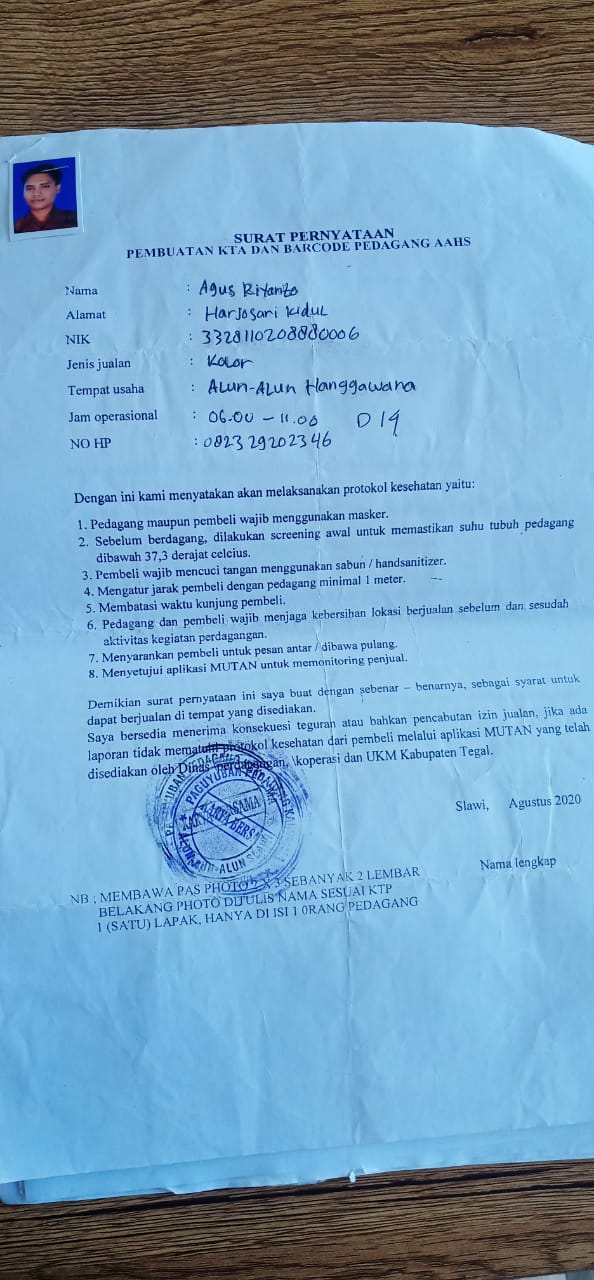 SURAT PERNYATAAN
PEMBUATAN KTA DAN BARCODE PEDAGANG AAHS
Nama : Agus Riyanto
Alamat : Harjosari Kidul
NIK : 3328110208880006
Jenis jualan : Kolor
Tempat usaha : Alun-Alun Hanggawana
Jam operasional : 06.00 - 11.00 D 19
NO HP : 082329202346
Dengan ini kami menyatakan akan melaksanakan protokol kesehatan yaitu:
1. Pedagang maupun pembeli wajib menggunakan masker.
2. Sebelum berdagang, dilakukan screening awal untuk memastikan suhu tubuh pedagang
dibawah 37,3 derajat celcius.
3. Pembeli wajib mencuci tangan menggunakan sabun / handsanitizer.
4. Mengatur jarak pembeli dengan pedagang minimal 1 meter.
5. Membatasi waktu kunjung pembeli.
6. Pedagang dan pembeli wajib menjaga kebersihan lokasi berjualan sebelum dan sesudah
aktivitas kegiatan perdagangan.
7. Menyarankan pembeli untuk pesan antar / dibawa pulang.
8. Menyetujui aplikasi MUTAN untuk memonitoring penjual.
Demikian surat pernyataan ini saya buat dengan sebenar – benarnya, sebagai syarat untuk
dapat berjualan di tempat yang disediakan.
Saya bersedia menerima konsekuesi teguran atau bahkan pencabutan izin jualan, jika ada
laporan tidak mematuhi protokol kesehatan dari pembeli melalui aplikasi MUTAN yang telah
disediakan oleh Dinas perdagangan, koperasi dan UKM Kabupaten Tegal.
Slawi, Agustus 2020
PAGUYUBAN PEDAGANG
KARYA BERSAMA
ALUN-ALUN
Nama lengkap
NB : MEMBAWA PAS PHOTO X 3 SEBANYAK 2 LEMBAR
BELAKANG PHOTO DITULIS NAMA SESUAI KTP
1 (SATU) LAPAK, HANYA DI ISI 1 0RANG PEDAGANG